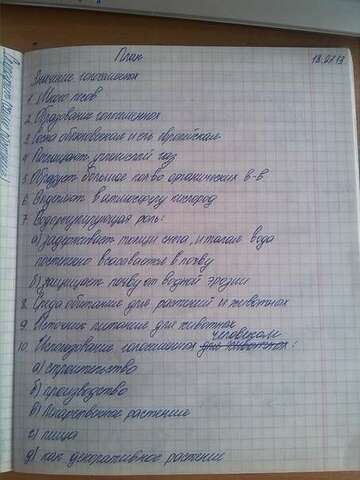 План 18.04.13
Значение голосеменных
1. Много лесов
2. Образование голосеменных
3. Сосна обыкновенная и ель европейская
4. Поглощают углекислый газ
5. Образует большое кол-во органических в-в
6. Выделяет в атмосферу кислород
7. Водорегулирующая роль:
а) задерживает таяние снега, и талая вода
постепенно всасывается в почву
б) защищает почву от водной эрозии
8. Среда обитания для растений и животных
9. Источник питания для животных
человеком
10. Использование голосеменных для животных :
а) строительство
б) производство
в) Лекарственное растение
с) пища
д) как декоративное растение